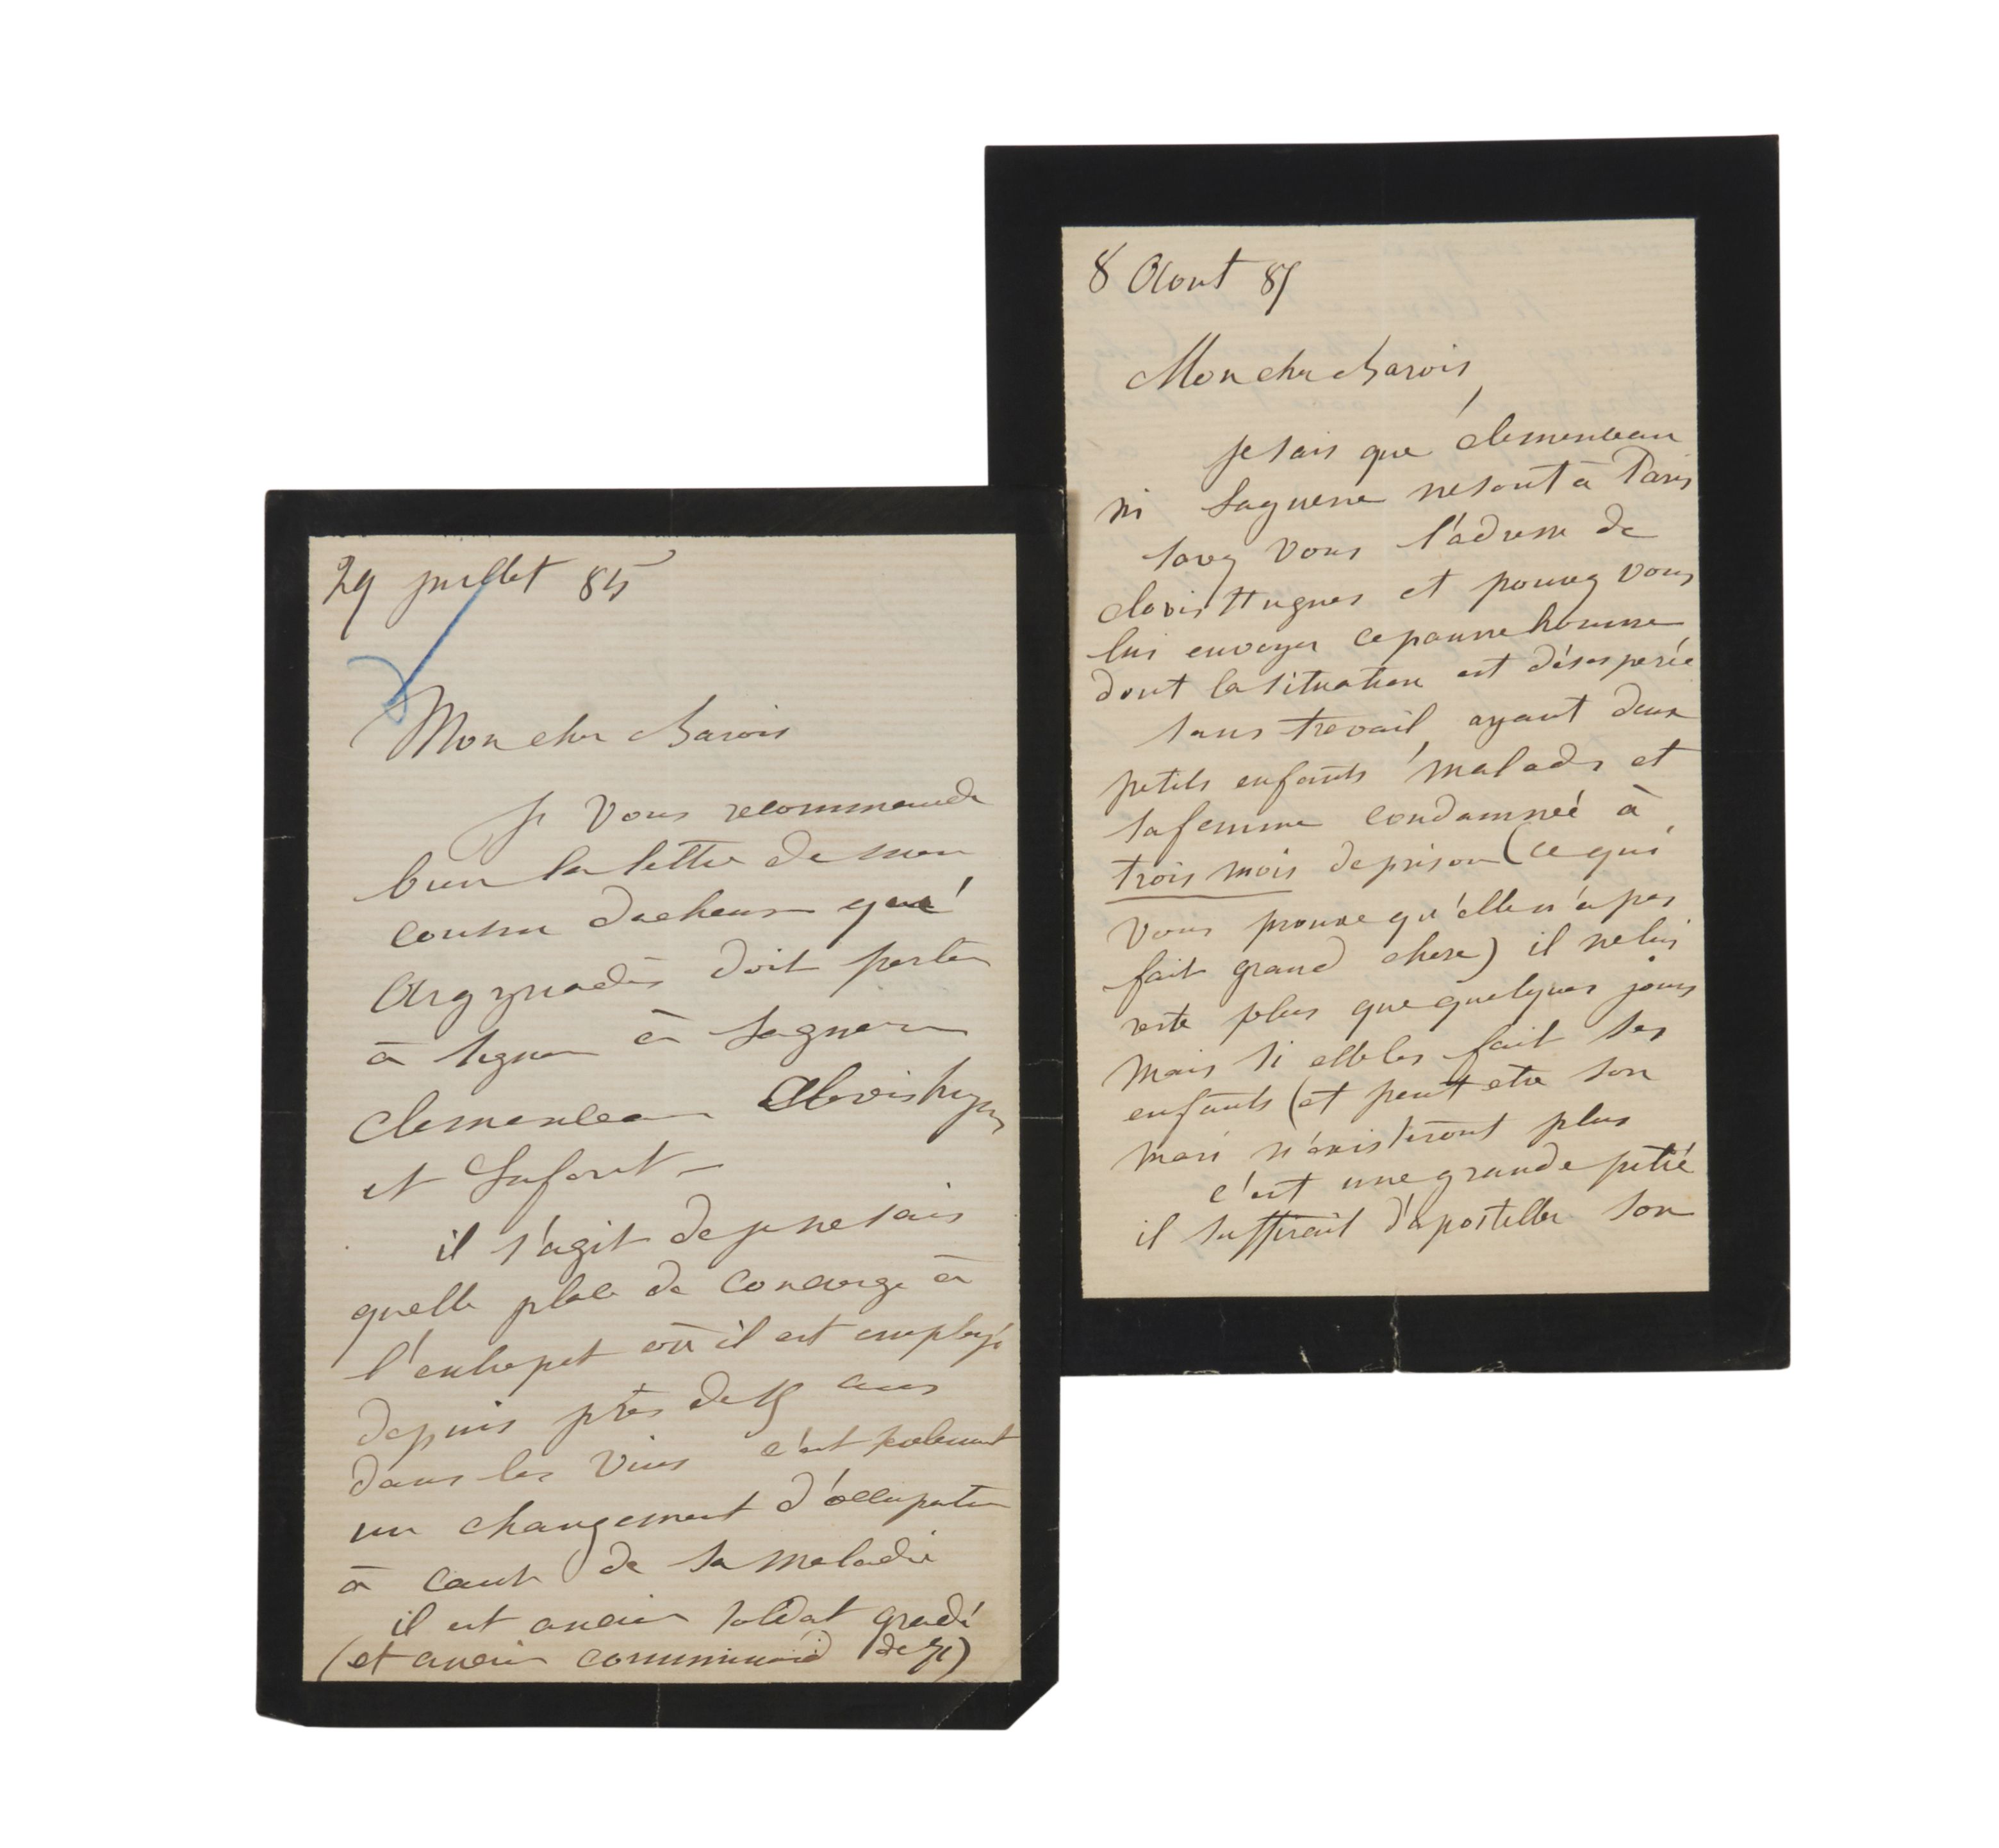 29 juillet 85
Mon cher Barois
Je vous recommande
bien la lettre de mon
cousin Dacheux que
Argyriadès doit porter
à signer à Laguerre
Clemenceau Clovis hugues
et Lafont
il s'agit de je ne sais
quelle place de concierge à
l'entrepot où il est employé
depuis près de 15 ans
dans les vins c'est seulement
un changement d'occupation
à cause de sa maladie
il est ancien soldat gradé
(et ancien communard de 71)
8 Aout 85
Mon cher Barois,
Je sais que Clemenceau
ni Laguerre ne sont à Paris
savez vous l'adresse de
Clovis Hugues et pouvez vous
lui envoyer ce pauvre homme
dont la situation est désesperée
sans travail, ayant deux
petits enfants malades et
sa femme condamnée à
trois mois de prison (ce qui
vous prouve qu'elle n'a pas
fait grand chose) il ne lui
reste plus que quelques jours
mais si elle les fait ses
enfants (et peut etre son
mari n'existeront plus
c'est une grande pitié
il suffirait d'apostiller son